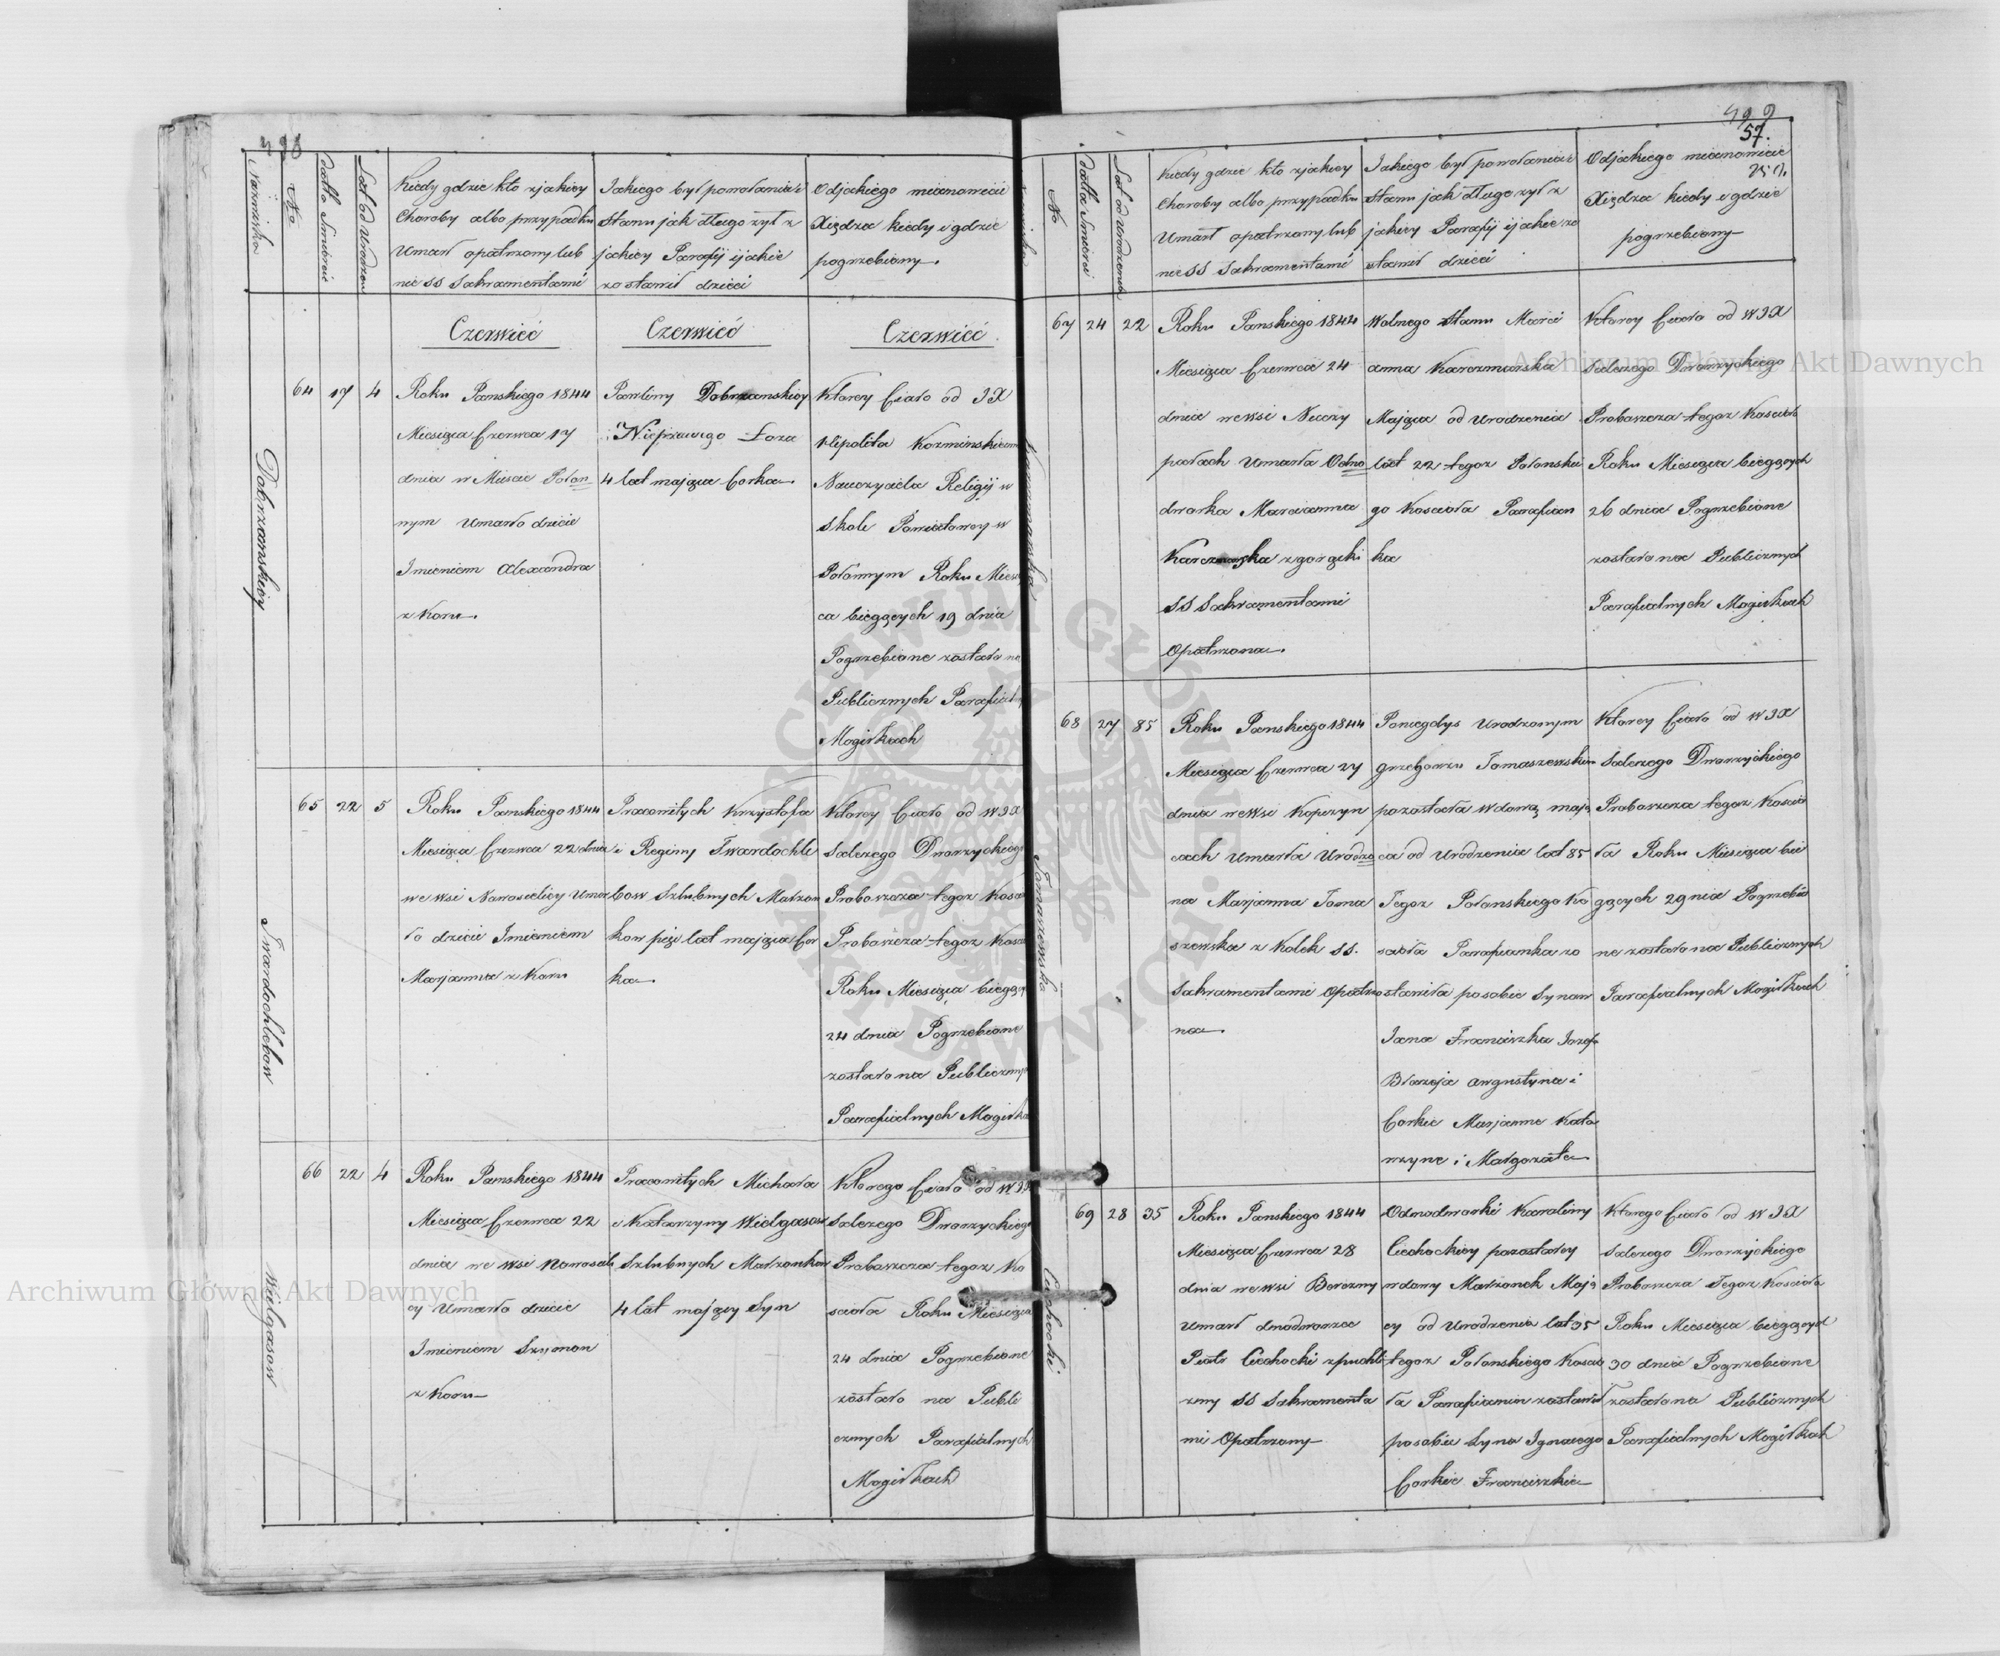 498
Nazwisko
No
Datta Smierci
Lat od Urodzen
Kiedy gdzie kto zjakiey
Choroby albo przypadku
Umarł opatrzony lub
nie SS Sakramentami
Jakiego był powołania i
Stanu jak długo żył z
jakiey Parafij ijakie
zostawił dzieci
Odjakiego mianowicie
Xiędza kiedy i gdzie
pogrzebiony.
Czerwieć
Czerwieć
Czerwieć
Dobrzanskiey
64 17 4
Roku Panskiego 1844
Miesiąca Czerwca 17
dnia w Miescie Połon
nym Umarło dziecie
Imieniem Alexandra
z Koru.
Pawliny Dobrzanskiey
Nieprawego Łoza
4 lat mająca Corka.
Ktorey Ciało od JX
Hipolita Kozminskiego
Nauczyciela Religij w
Skole Powiatowey w
Połonnym Roku Miesią
ca bieżących 19 dnia
Pogrzebione zostało na
Publicznych Parafialn
Mogiłkach
Twardochlebow
65 22 5
Roku Panskiego 1844
Miesiąca Czerwca 22 dnia
we wsi Nowosielicy Umar
ło dziecie Imieniem
Marjanna z Koru
Pracowitych Krzysztofa
i Reginy Twardochle
bow Szlubnych Małzon
kow pięć lat mająca Cor
ka.
Ktorey Ciało od WJX
Salezego Dworzyckiego
Proboszcza tegoz Kosci
Proboszcza tegoz Kosci
Roku Miesiąca bieżąc
24 dnia Pogrzebione
zostało na Publicznych
Parafialnych Mogiłka
Wielgasow
66 22 4
Roku Panskiego 1844
Miesiąca Czerwca 22
dnia we wsi Nowosieli
cy Umarło dziecie
Imieniem Szymon
z Koru
Pracowitych Michała
i Katarzyny Wielgasow
Szlubnych Małzonkow
4 lat mający Syn
Ktorego Ciało od WJX
Salezego Dworzyckiego
Proboszcza tegoz Ko
scioła Roku Miesiąca
24 dnia Pogrzebione
zostało na Publi
cznych Parafialnych
Mogiłkach
499
57.
No
Datta Smierci
Lat od Urodzenia
Kiedy gdzie kto zjakiey
Choroby albo przypadku
Umarł opatrzony lub
nie SS Sakramentami
Jakiego był powołania i
Stanu jak długo żył z
jakiey Parafij ijakie zo
stawił dzieci
Odjakiego mianowicie
Xiędza kiedy i gdzie
pogrzebiony
Karczmarska
67 24 22
Roku Panskiego 1844
Miesiąca Czerwca 24
dnia wewsi Nuczy
połach Umarła Odno
dworka Marcianna
Karczmarska zgorączki
SS Sakramentami
Opatrzona.
Wolnego Stanu Marci
anna Karczmarska
Mająca od Urodzenia
lat 22 tegoz Połonskie
go Koscioła Parafian
ka
Ktorey Ciało od WJX
Salezego Dworzyckiego
Proboszcza tegoz Koscioła
Roku Miesiąca bieżących
26 dnia Pogrzebione
zostało na Publicznych
Parafialnych Mogiłkach
Tomaszewska
68 27 85
Roku Panskiego 1844
Miesiąca Czerwca 27
dnia wewsi Koperzyn
cach Umarła Urodzo
na Marjanna Toma
szewska z Kolek SS.
Sakramentami Opatrzo
na.
Poniegdys Urodzonym
Grzegorzu Tomaszewskim
pozostała wdową mają
ca od Urodzenia lat 85
Tegoz Połonskiego Ko
scioła Parafianka zo
stawiła posobie Synow
Jana Franciszka Jozefa
Błazeja Augustyna i
Corkie Marjanne Kata
rzyne i Małgorzate.
Ktorey Ciało od WJX
Salezego Dworzyckiego
Proboszcza tegoz Koscio
ła Roku Miesiąca bie
żących 29 nia Pogrzebio
ne zostało na Publicznych
Parafialnych Mogiłkach
Ciechocki
69 28 35
Roku Panskiego 1844
Miesiąca Czerwca 28
dnia wewsi Berezny
Umarł dnodworzec
Piotr Ciechocki zpuchli
zny SS Sakramenta
mi Opatrzony
Odnodworki Karoliny
Ciechockiey pozostałey
wdowy Małzonek Mają
cy od Urodzenia lat 35
tegoz Połonskiego Koscio
ła Parafianin zostawił
posobie Syna Ignacego
Corkie Franciszkie
Ktorego Ciało od WJX
Salezego Dworzyckiego
Proboszcza Tegoz Koscioła
Roku Miesiąca bieżących
30 dnia Pogrzebione
zostało na Publicznych
Parafialnych Mogiłkach
Archiwum Główne Akt Dawnych
Archiwum Główne Akt Dawnych
ARCHIWUM GŁÓWNE AKT DAWNYCH